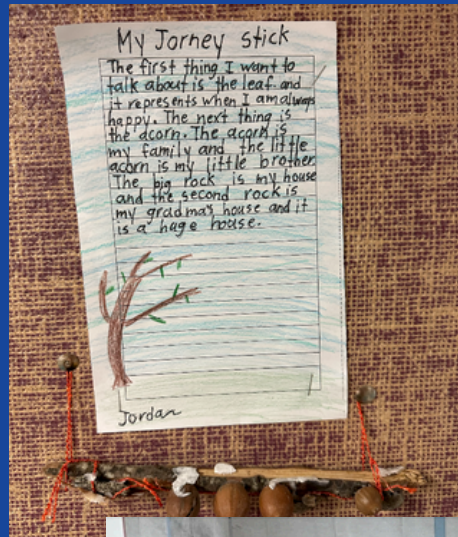 My Jorney stick
The first thing I want to
talk about is the leaf. and
it represents when I am always
happy. The next thing is
the acorn. The acorn is
my family and the little
acorn is my little brother.
The big rock is my house
and the second rock is
my gradma's house and it
is a huge house.
Jordan